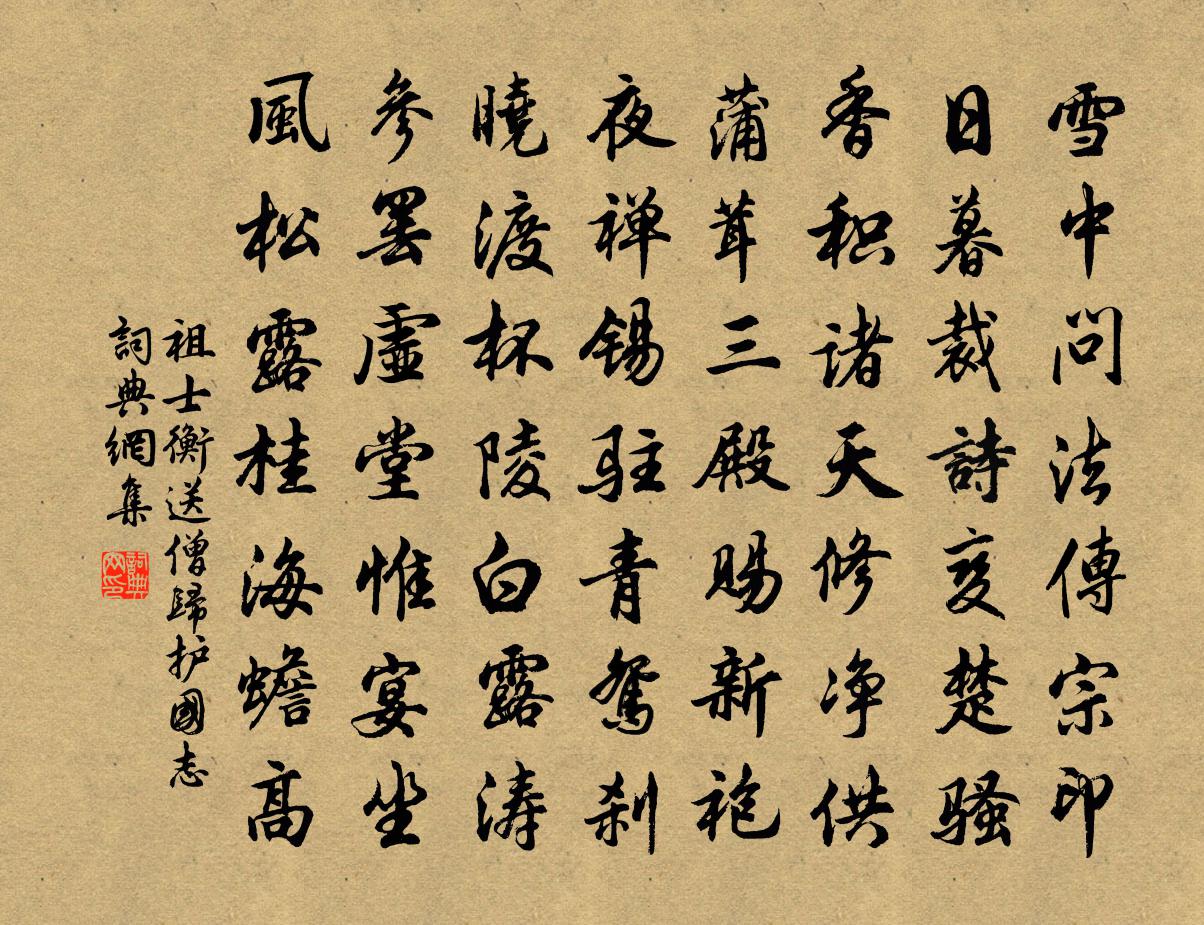 雪中问法傳宗印
日暮裁詩变楚骚
香积诸天修净供
蒲茸三殿赐新袍
夜禅锡驻青鸳刹
曉渡杯陵白露涛
參罢虚堂惟宴坐
風松露桂海蟾高
祖士衡送僧歸护國志
詞典網集
詞典网印